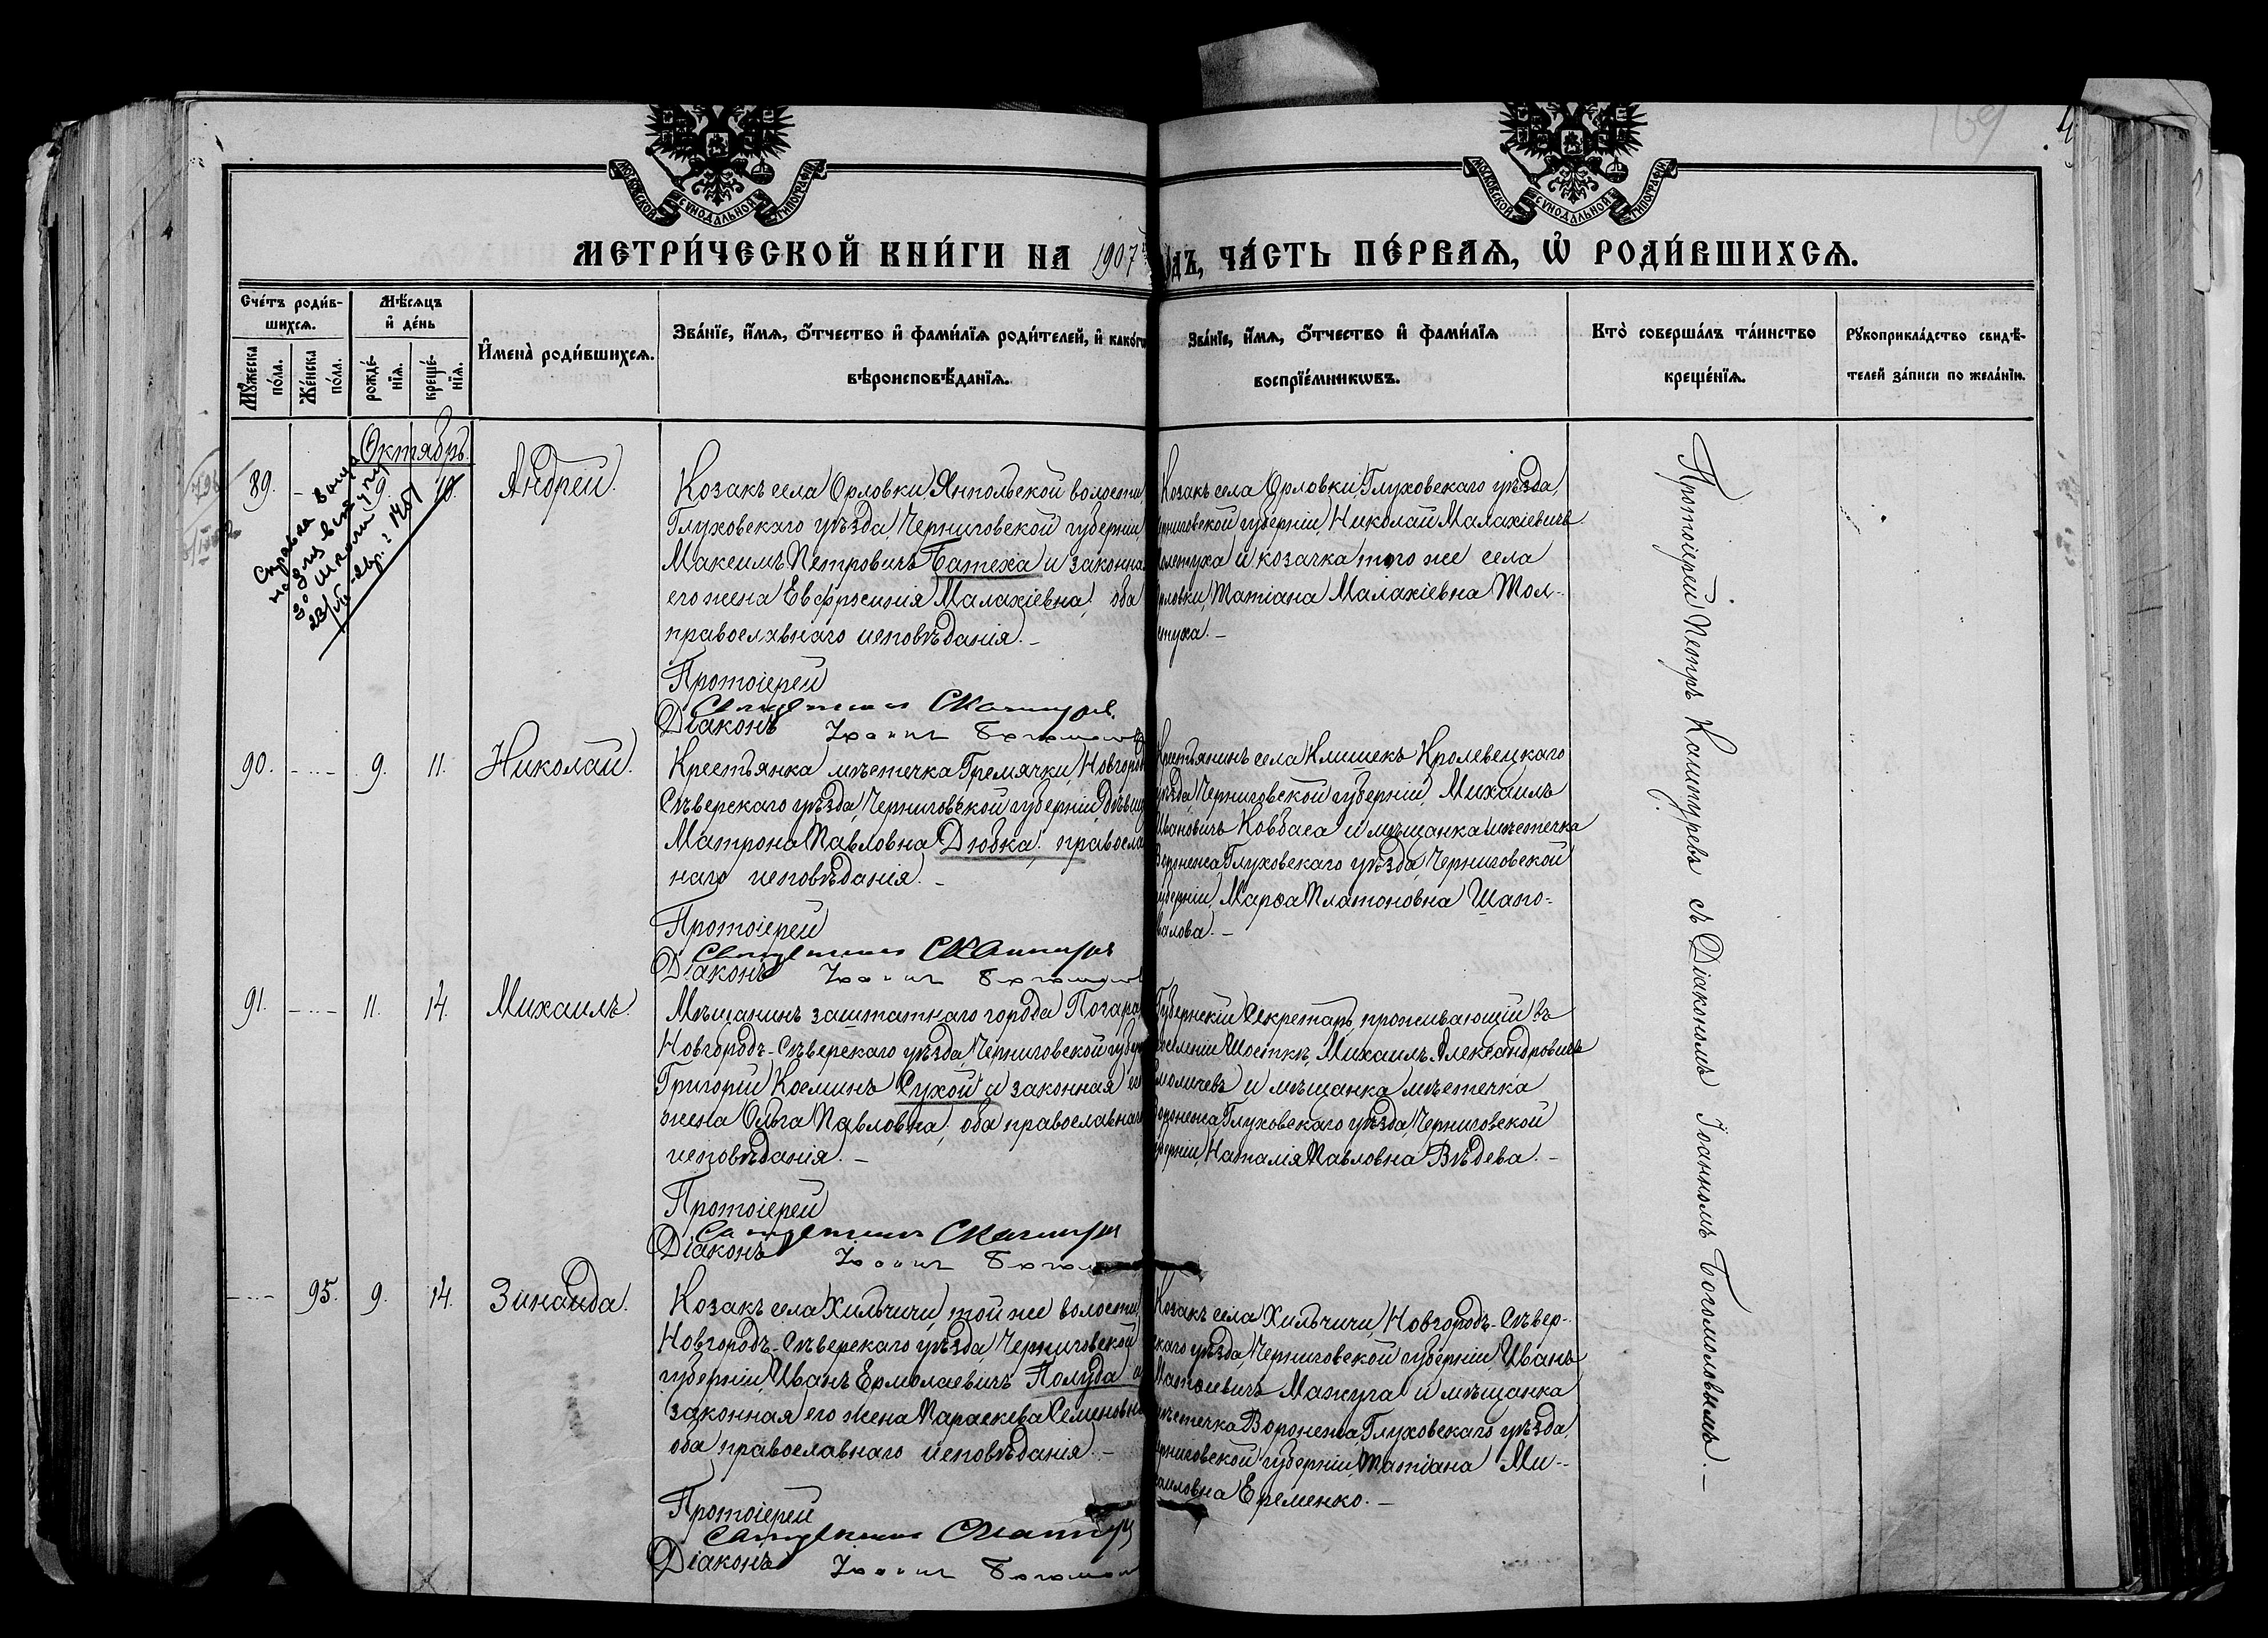 169
МОСКОВСКОЙ СУНОДАЛЬНОЙ ТИПОГРАФІИ
МОСКОВСКОЙ СУНОДАЛЬНОЙ ТИПОГРАФІИ
МЕТРИ́ЧЕСКОЙ КНИ́ГИ НА 1907 ОДЪ, ЧА́СТЬ ПЕ́РВАѦ, Ѡ҆ РОДИ́ВШИХСѦ.
Сче́тъ роди́в-
шихсѧ.
Мꙋ́жеска по́ла.
Же́нска по́ла.
Мѣ́сѧцъ и҆ де́нь
рожде́-
нїѧ.
креще́-
нїѧ.
И҆мена̀ роди́вшихсѧ.
Зва́нїе, и҆́мѧ, ѻ҆́тчество и҆ фами́лїѧ роди́телей, и҆ како́гѡ
вѣроисповѣ́данїѧ.
Зва́нїе, и҆́мѧ, ѻ҆́тчество и҆ фами́лїѧ
воспрїе́мникѡвъ.
Кто̀ соверша́лъ та́инство
креще́нїѧ.
Рꙋкоприкла́дство свидѣ́-
телей за́писи по жела́нїю.
Октябрь.
89. 9. 10. Андрей.
Козакъ села Орловки, Янпольской волости,
Глуховскаго уѣзда, Черниговской губерніи,
Максимъ Петровичъ Батеха и законна
его жена Евфросинія Малахіевна, оба
православнаго исповѣданія. –
Протоіерей
Діаконъ
Козакъ села Орловки, Глуховскаго уѣзда,
рниговской губерніи, Николай Малахіевичъ
олстуха и козачка того же села
рловки, Татіана Малахіевна Тол-
стуха. –
90. 9. 11. Николай.
Крестьянка мѣстечка Гремячки, Новгород
Сѣверскаго уѣзда, Черниговской губерніи, дѣвица
Матрона Павловна Дювка, правосла
наго исповѣданія. –
Протоіерей
Діаконъ
Крестьянинъ села Клишекъ Кролевецкаго
уѣзда, Черниговской губерніи, Михаилъ
Ивановичъ Ковбаса и мѣщанка мѣстечка
Воронежа Глуховскаго уѣзда, Черниговской
губерніи, Марѳа Платоновна Шапо=
валова. –
91. 11. 14. Михаилъ.
Мѣщанинъ заштатнаго города Погара,
Новгородъ-Сѣверскаго уѣзда, Черниговской губер
Григорій Косминъ Сухой и законная ег
жена Ольга Павловна, оба православнаго
исповѣданія. –
Протоіерей
Діаконъ
Губернскій Секретарь, проживающій въ
поселеніи Шосткѣ, Михаилъ Александровичъ
и мѣщанка мѣстечка
Воронежа, Глуховскаго уѣзда, Черниговской
губерніи, Наталія Павловна Вѣдева. –
95. 9. 14. Зинаида.
Козакъ села Хильчичи, той же волости,
Новгородъ-Сѣверскаго уѣзда, Черниговской
губерніи, Иванъ Ермолаевичъ Полуда и
законная его жена Параскева Семеновна
оба православнаго исповѣданія. –
Протоіерей
Діаконъ
Козакъ села Хильчичи, Новгородъ-Сѣвер-
скаго уѣзда, Черниговской губерніи, Иванъ
Матѳіевичъ Мажуга и мѣщанка
мѣстечка Воронежа, Глуховскаго уѣзда,
рниговской губерніи, Татіана Ми-
хаиловна Еременко. –
Протоіерей Петръ съ Діакономъ Іоанномъ Богомоловымъ. –